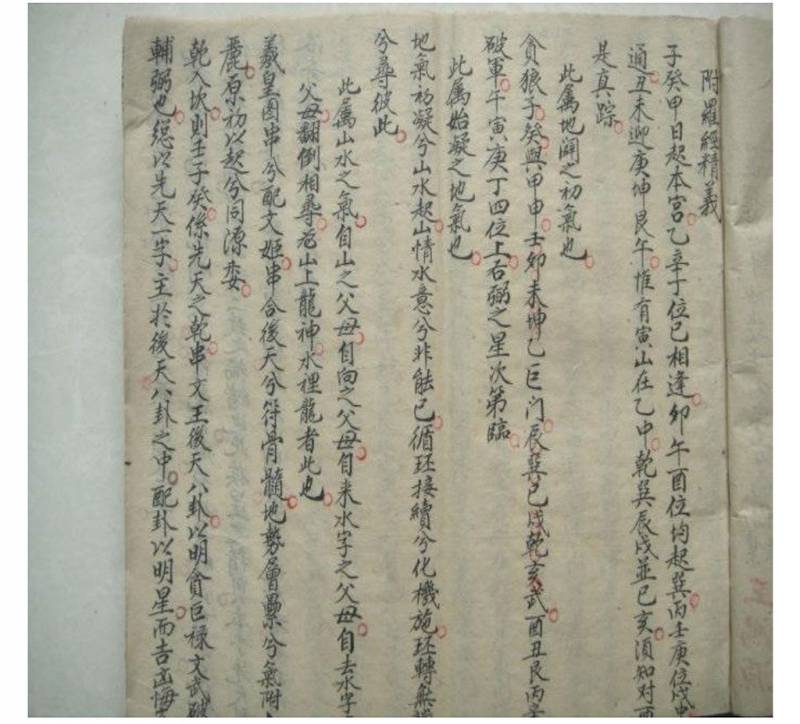 附羅經精義
子癸甲日起本宮乙辛丁位巳相逢卯午酉位均起巽丙壬庚位戌
通丑未迎庚坤艮午惟有寅山在乙中乾巽辰戌並巳亥須知对酉
是真踪
此属地闢之初氣也
貪狼子癸與甲申壬卯未坤乙巨门辰巽巳戌乾亥武酉丑艮丙辛
破軍午寅庚丁四位上右弼之星次第臨
此属始凝之地氣也
地氣初凝兮山水起山情水意兮非能已循环接續兮化機施环轉無
兮尋彼此
此属山水之氣自山之父母自向之父母自来水字之父母自去水字
父母翻倒相尋为山上龍神水裡龍者此也
羲皇圖串兮配文姬串合後天兮符骨髓地勢層纍兮氣附
麗原初以起兮同源委
乾入坎則壬子癸係先天之乾串文王後天八卦以明貪巨禄文武破
輔弼也緫以先天一字主於後天八卦之中配卦以明星而吉凶悔